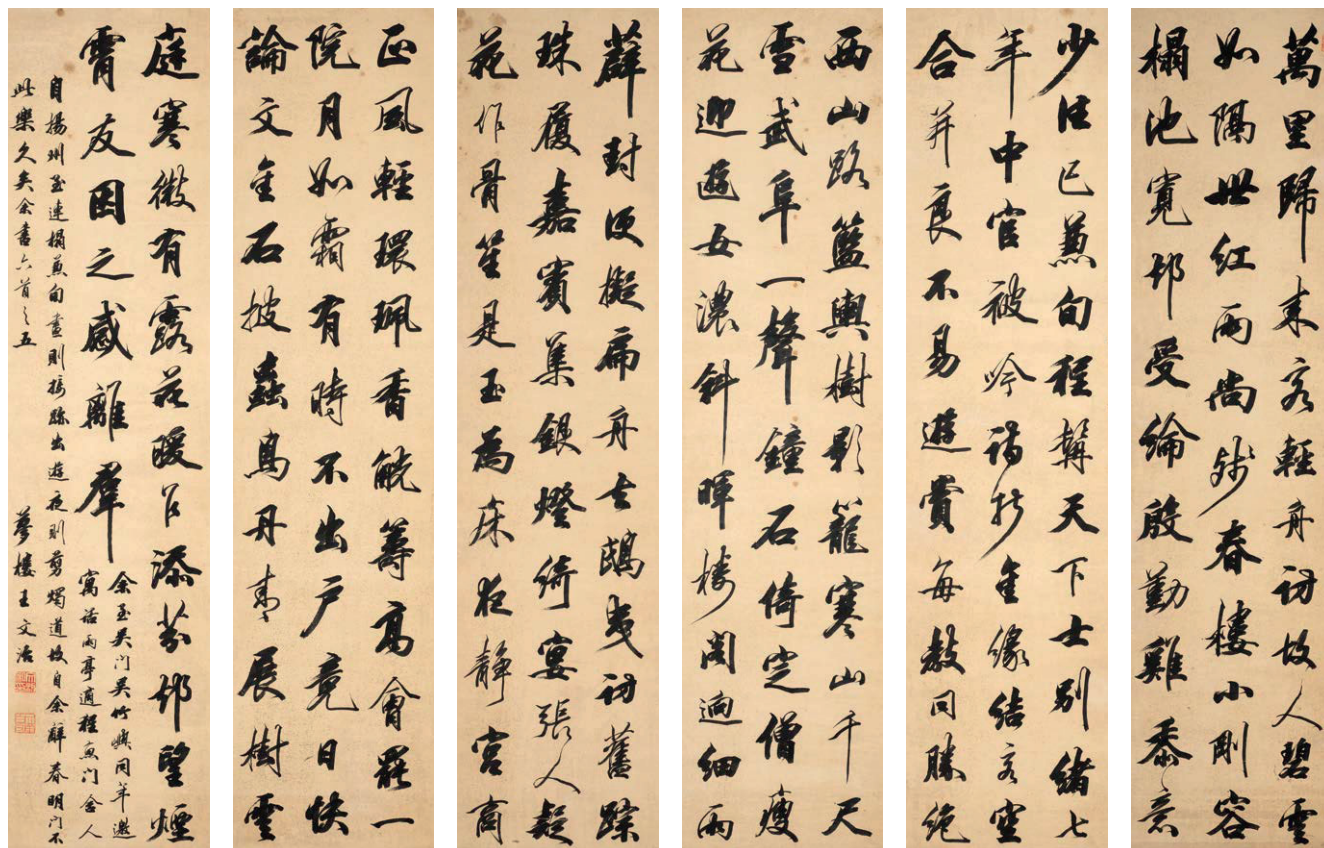 萬里歸來客輕舟訪故人碧雲
如隔世紅雨尚殘春樓小剛容
榻池寬却受綸殷勤雞黍意
少住已兼旬程髯天下士別緒七
年中官被吟詩折金緣結客空
合并良不易遊賞每教同勝絶
西山路籃輿樹影籠寒山千尺
雪武阜一聲鐘石倚定僧瘦
花迎遊女濃斜暉樓閣迥細雨
薜封便擬扁舟去鴟夷訪舊蹤
珠履嘉賓集銀燈綺宴張人疑
花作骨笙是玉為床夜靜宮商
正風輕環珮香觥籌高會罷一
院月如霜有時不出戶竟日快
論文金石披蟲鳥丹青展樹雲
庭寒微有露花暖乍添芬却望煙
霄友因之感離羣
余至吴門吴竹嶼同年邀
寓話雨亭適程魚門舍人
自揚州至連榻兼旬晝則接跡出遊夜則剪燭道故自余辭春明門不
此樂久矣余書六首之五
夢樓王文治